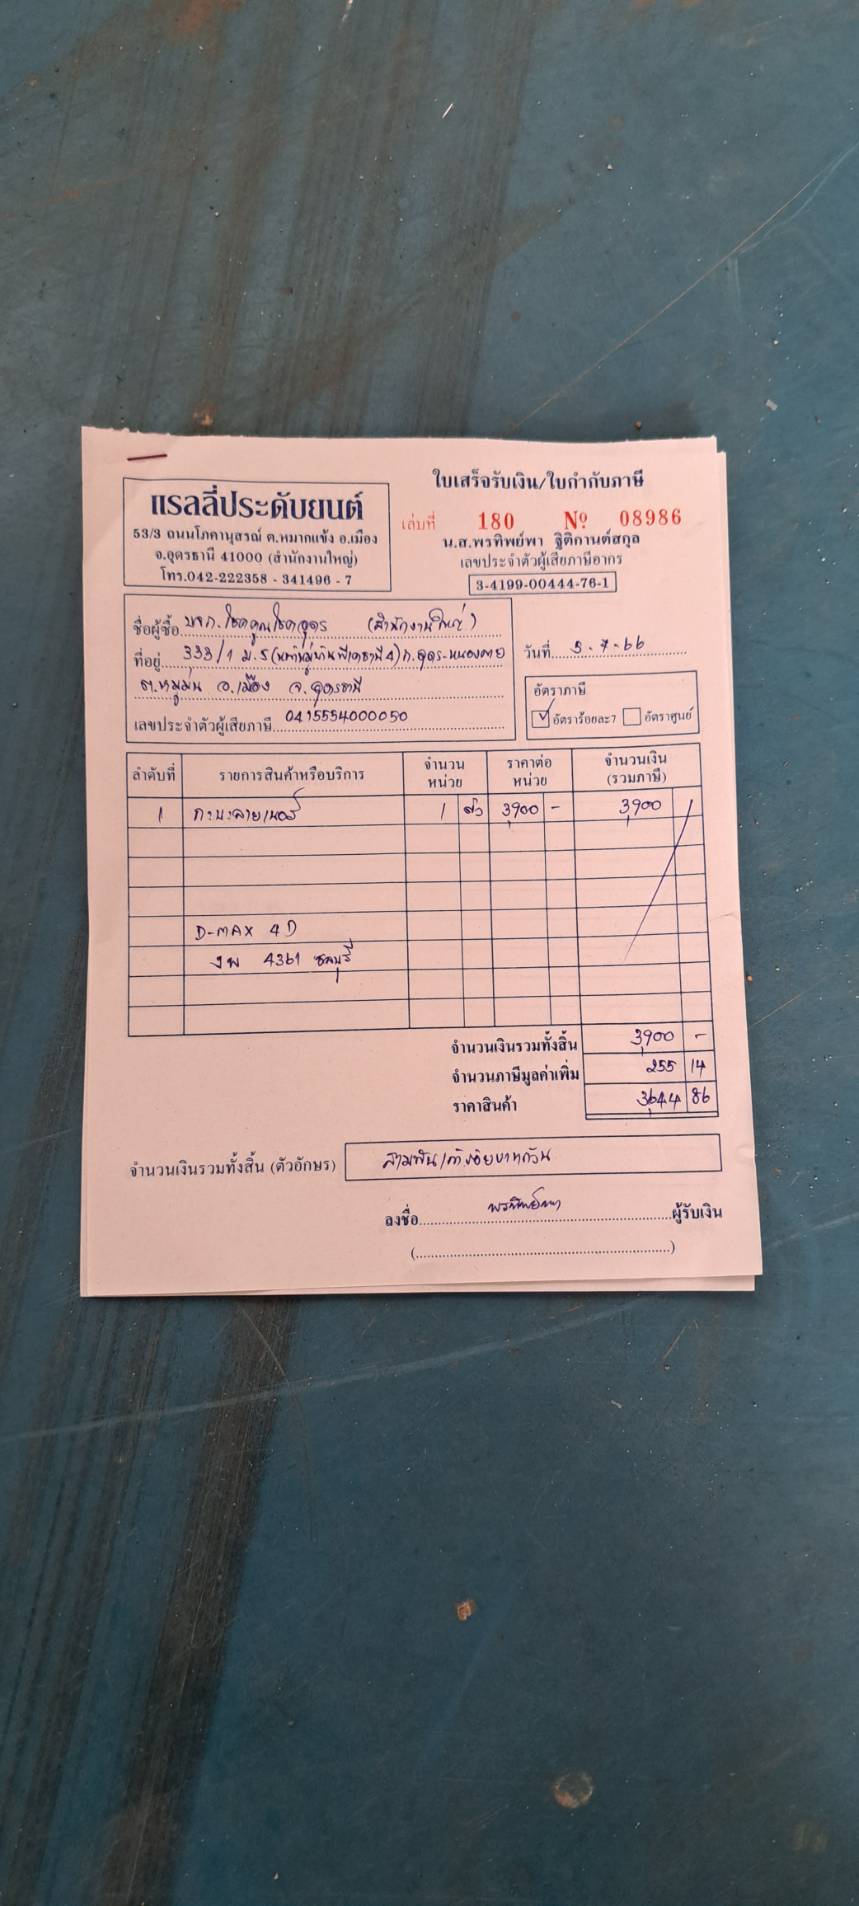 ใบเสร็จรับเงิน/ใบกำกับภาษี
แรลลี่ประดับยนต์
53/3 ถนนโภคานุสรณ์ ต.หมากแข้ง อ.เมือง
จ.อุดรธานี 41000 (สำนักงานใหญ่)
โทร.042-222358 - 341496 - 7
เล่มที่ 180 Nº 08986
น.ส.พรทิพย์พา ฐิติกานต์สกุล
เลขประจำตัวผู้เสียภาษีอากร
3-4199-00444-76-1
ชื่อผู้ซื้อ บจก.โชคคูณโชคอุดร (สำนักงานใหญ่)
ที่อยู่ 333/1 ม.5 ถ.อุดร-หนองคาย
ต.หมูม่น อ.เมือง จ.อุดรธานี
เลขประจำตัวผู้เสียภาษี 0415554000050
วันที่ 5-7-66
อัตราภาษี
อัตราร้อยละ7 อัตราศูนย์
ลำดับที่ รายการสินค้าหรือบริการ จำนวนหน่วย ราคาต่อหน่วย จำนวนเงิน (รวมภาษี)
1 กะบะลายเนอร์ 1 ตัว 3,900 - 3,900
D-MAX 4D
4361 ชลบุรี
จำนวนเงินรวมทั้งสิ้น 3,900 -
จำนวนภาษีมูลค่าเพิ่ม 255 14
ราคาสินค้า 3,644 86
จำนวนเงินรวมทั้งสิ้น (ตัวอักษร) สามพันเก้าร้อยบาทถ้วน
ลงชื่อ พรทิพย์พา ผู้รับเงิน